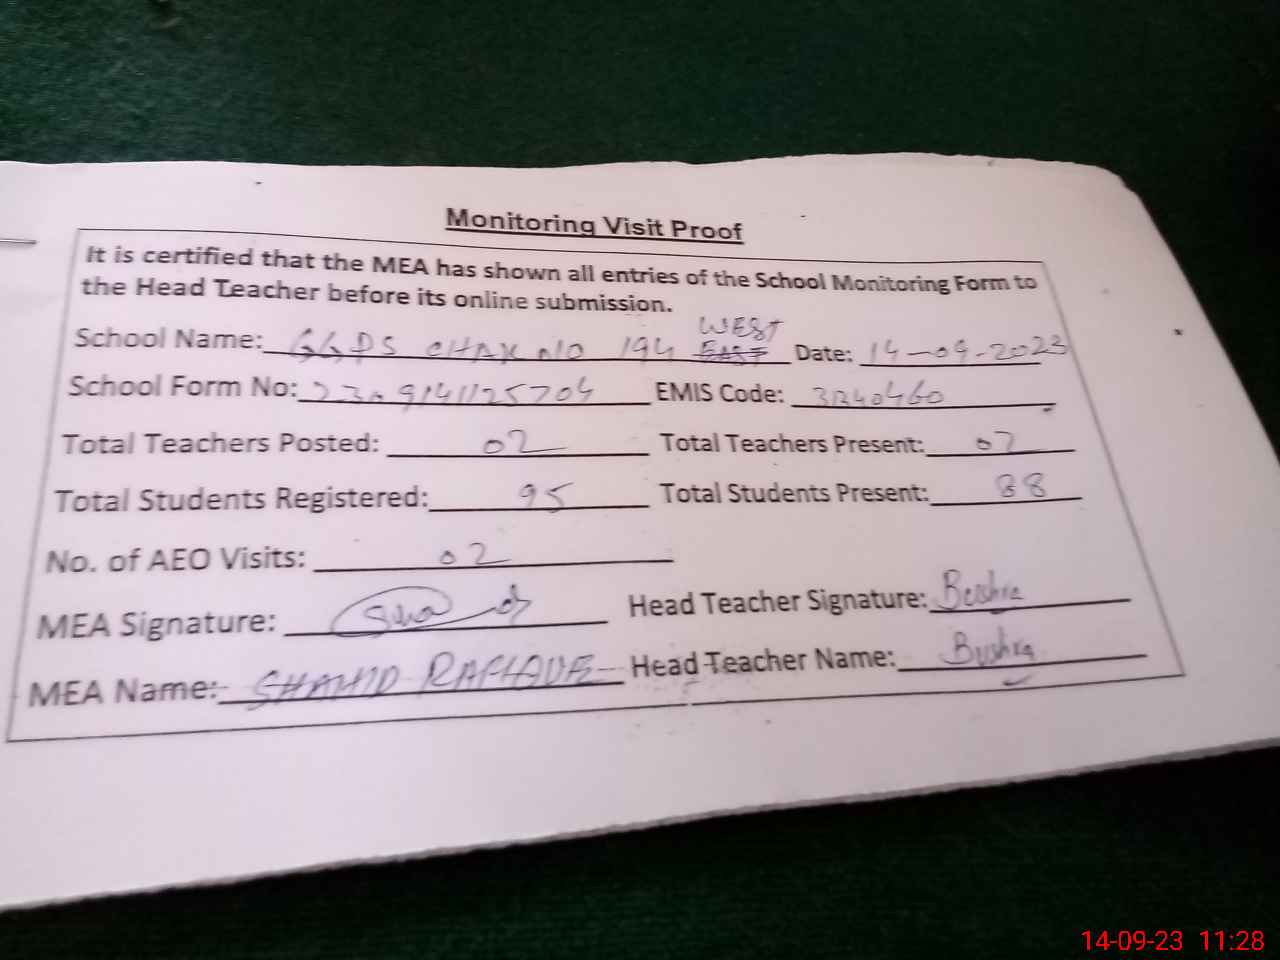 Monitoring Visit Proof
It is certified that the MEA has shown all entries of the School Monitoring Form to
the Head Teacher before its online submission.
School Name: GGPS CHAK NO 194 EAST WEST Date: 14-09-2023
School Form No: EMIS Code:
Total Teachers Posted: 02 Total Teachers Present: 02
Total Students Registered: 95 Total Students Present: 88
No. of AEO Visits: 02
MEA Signature: Head Teacher Signature: Bushra
MEA Name: SHAHID RAFIQUE Head Teacher Name: Bushra
14-09-23 11:28